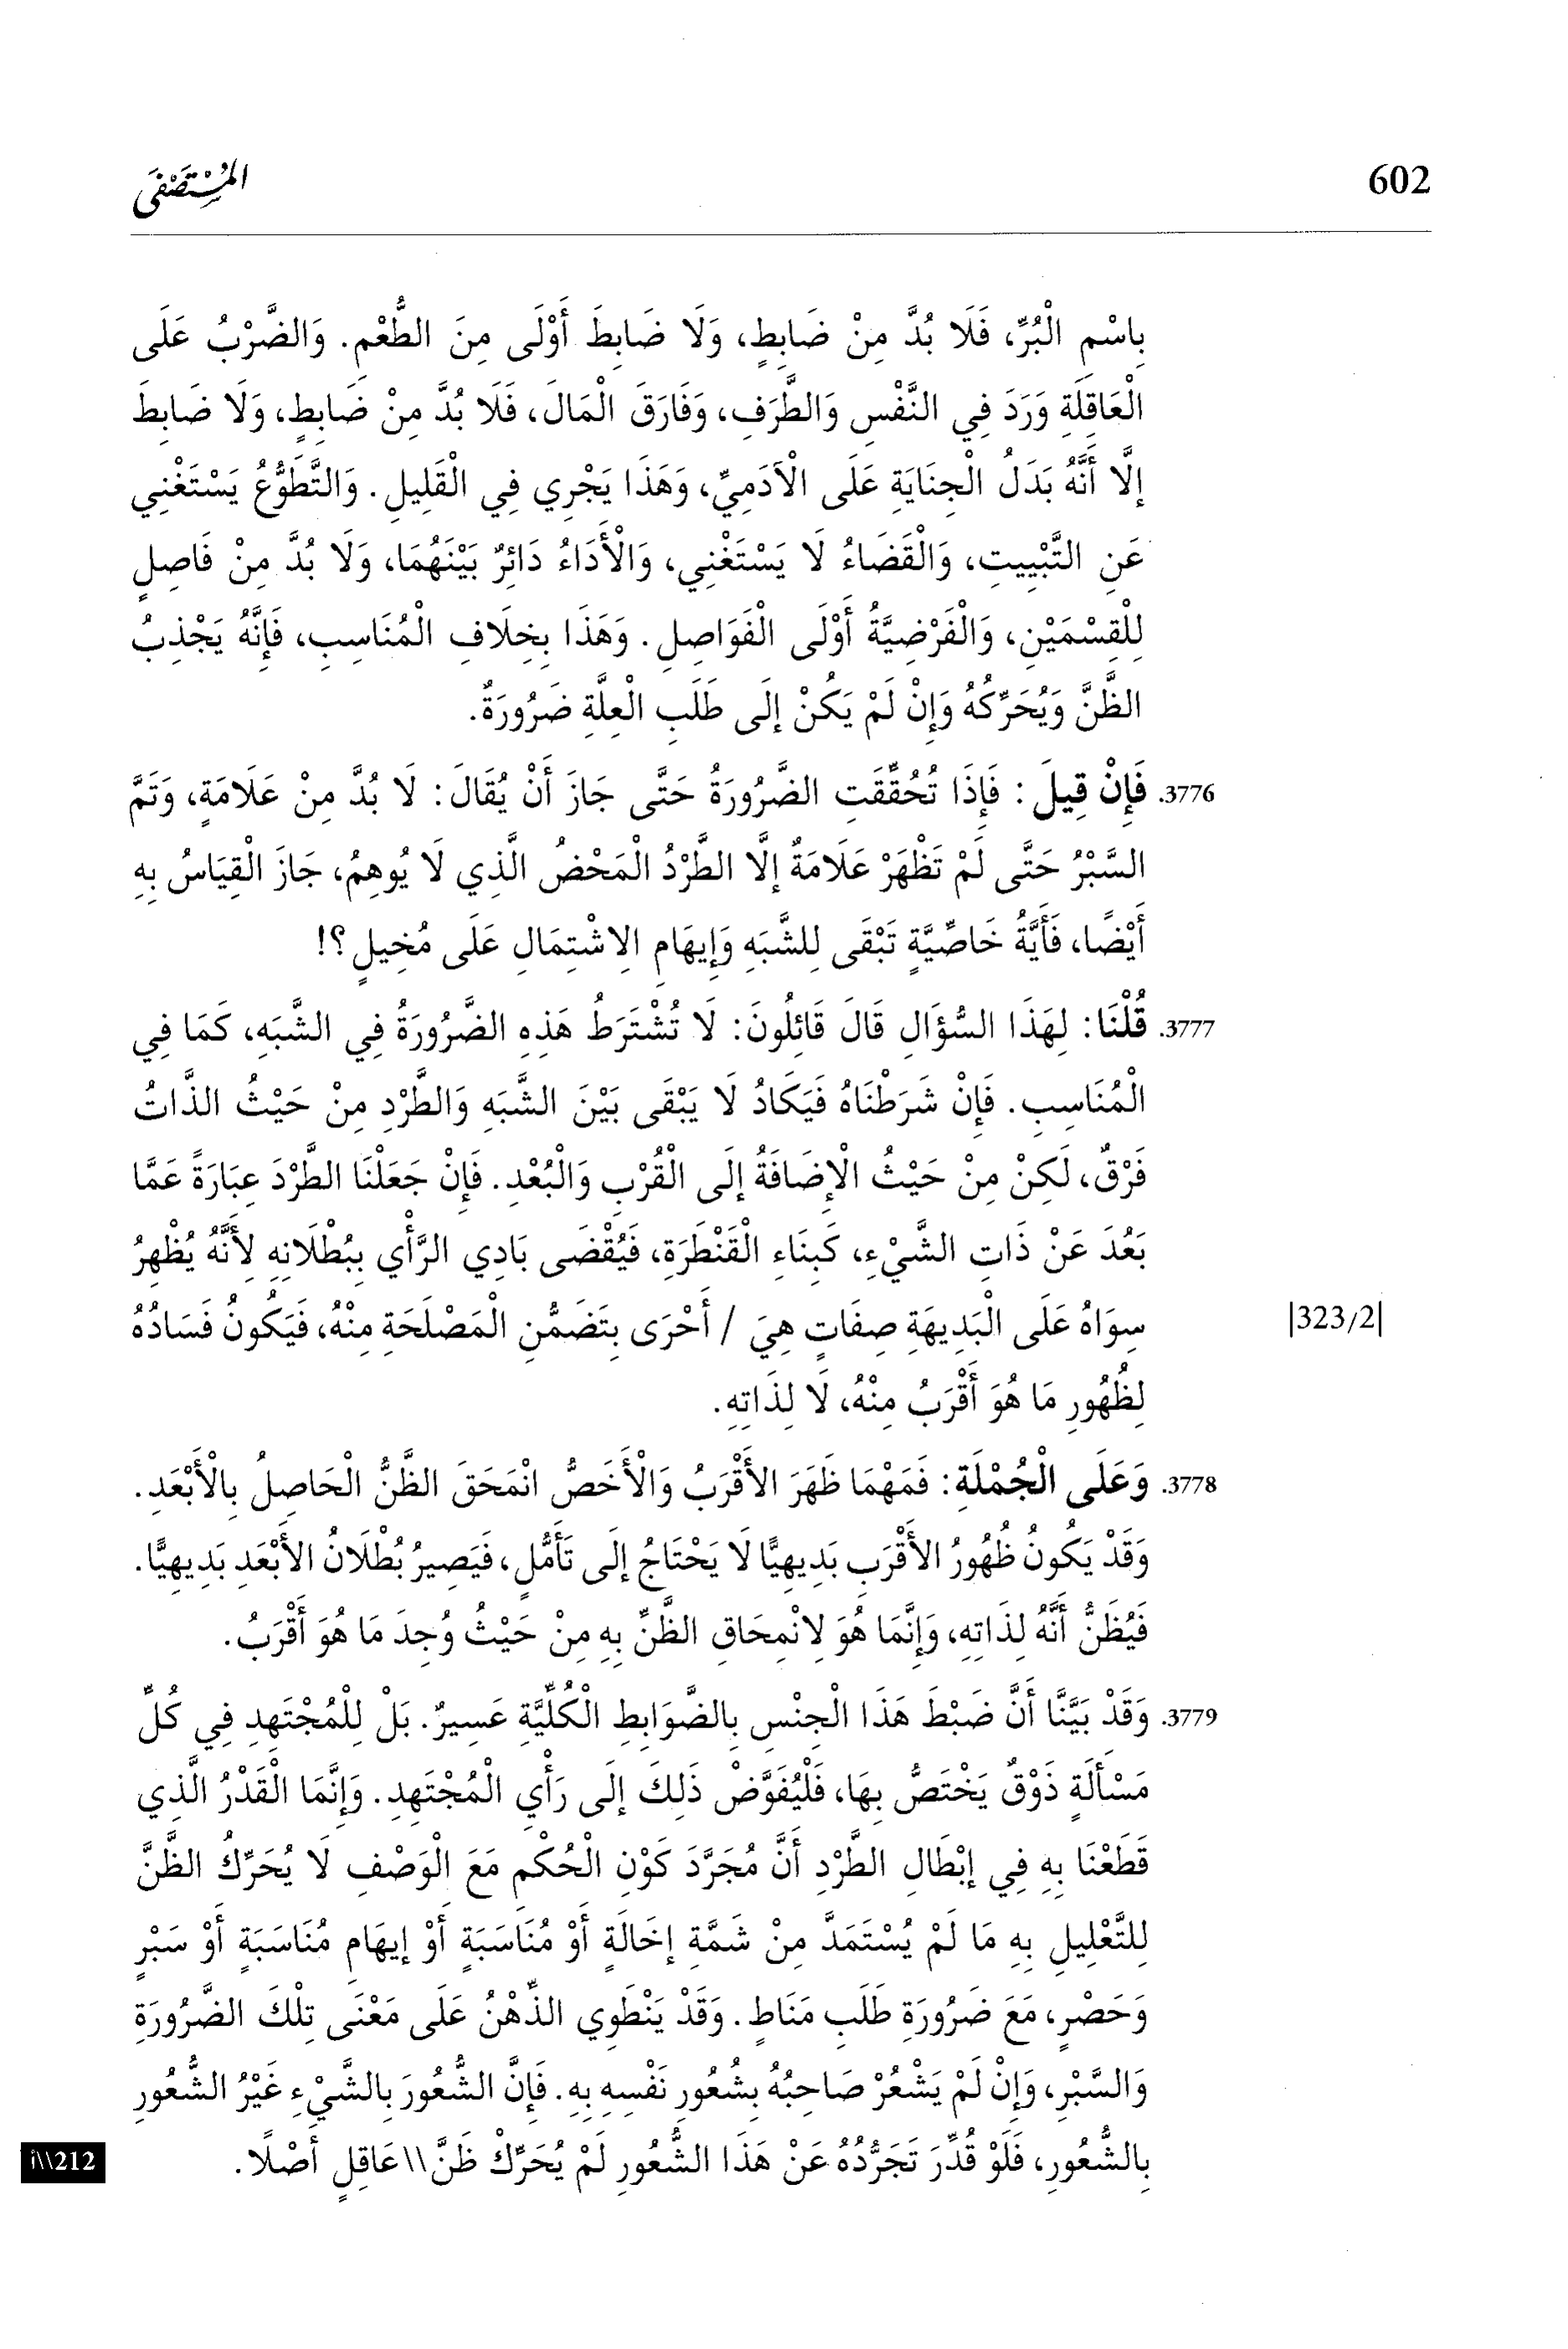 602
المُسْتَصْفَى
بِاسْمِ الْبُرِّ، فَلَا بُدَّ مِنْ ضَابِطٍ، وَلَا ضَابِطَ أَوْلَى مِنَ الطُّعْمِ. وَالضَّرْبُ عَلَى
الْعَاقِلَةِ وَرَدَ فِي النَّفْسِ وَالطَّرَفِ، وَفَارَقَ الْمَالَ، فَلَا بُدَّ مِنْ ضَابِطٍ، وَلَا ضَابِطَ
إِلَّا أَنَّهُ بَدَلُ الْجِنَايَةِ عَلَى الْآدَمِيِّ، وَهَذَا يَجْرِي فِي الْقَلِيلِ. وَالتَّطَوُّعُ يَسْتَغْنِي
عَنِ التَّبْيِيتِ، وَالْقَضَاءُ لَا يَسْتَغْنِي، وَالْأَدَاءُ دَائِرٌ بَيْنَهُمَا، وَلَا بُدَّ مِنْ فَاصِلٍ
لِلْقِسْمَيْنِ، وَالْفَرْضِيَّةُ أَوْلَى الْفَوَاصِلِ. وَهَذَا بِخِلَافِ الْمُنَاسِبِ، فَإِنَّهُ يَجْذِبُ
الظَّنَّ وَيُحَرِّكُهُ وَإِنْ لَمْ يَكُنْ إِلَى طَلَبِ الْعِلَّةِ ضَرُورَةٌ.
3776. فَإِنْ قِيلَ: فَإِذَا تُحُقِّقَتِ الضَّرُورَةُ حَتَّى جَازَ أَنْ يُقَالَ: لَا بُدَّ مِنْ عَلَامَةٍ، وَتَمَّ
السَّبْرُ حَتَّى لَمْ تَظْهَرْ عَلَامَةٌ إِلَّا الطَّرْدُ الْمَحْضُ الَّذِي لَا يُوهِمُ، جَازَ الْقِيَاسُ بِهِ
أَيْضًا، فَأَيَّةُ خَاصِّيَّةٍ تَبْقَى لِلشَّبَهِ وَإِيهَامِ الِاشْتِمَالِ عَلَى مُخِيلٍ؟!
3777. قُلْنَا: لِهَذَا السُّؤَالِ قَالَ قَائِلُونَ: لَا تُشْتَرَطُ هَذِهِ الضَّرُورَةُ فِي الشَّبَهِ، كَمَا فِي
الْمُنَاسِبِ. فَإِنْ شَرَطْنَاهُ فَيَكَادُ لَا يَبْقَى بَيْنَ الشَّبَهِ وَالطَّرْدِ مِنْ حَيْثُ الذَّاتُ
فَرْقٌ، لَكِنْ مِنْ حَيْثُ الْإِضَافَةُ إِلَى الْقُرْبِ وَالْبُعْدِ. فَإِنْ جَعَلْنَا الطَّرْدَ عِبَارَةً عَمَّا
بَعُدَ عَنْ ذَاتِ الشَّيْءِ، كَبِنَاءِ الْقَنْطَرَةِ، فَيُقْضَى بَادِي الرَّأْيِ بِبُطْلَانِهِ لِأَنَّهُ يُظْهِرُ
سِوَاهُ عَلَى الْبَدِيهَةِ صِفَاتٍ هِيَ / أَحْرَى بِتَضَمُّنِ الْمَصْلَحَةِ مِنْهُ، فَيَكُونُ فَسَادُهُ
|323/2|
لِظُهُورِ مَا هُوَ أَقْرَبُ مِنْهُ، لَا لِذَاتِهِ.
3778. وَعَلَى الْجُمْلَةِ: فَمَهْمَا ظَهَرَ الأَقْرَبُ وَالْأَخَصُّ انْمَحَقَ الظَّنُّ الْحَاصِلُ بِالْأَبْعَدِ.
وَقَدْ يَكُونُ ظُهُورُ الأَقْرَبِ بَدِيهِيًّا لَا يَحْتَاجُ إِلَى تَأَمُّلٍ، فَيَصِيرُ بُطْلَانُ الأَبْعَدِ بَدِيهِيًّا.
فَيُظَنُّ أَنَّهُ لِذَاتِهِ، وَإِنَّمَا هُوَ لِانْمِحَاقِ الظَّنِّ بِهِ مِنْ حَيْثُ وُجِدَ مَا هُوَ أَقْرَبُ.
3779. وَقَدْ بَيَّنَّا أَنَّ ضَبْطَ هَذَا الْجِنْسِ بِالضَّوَابِطِ الْكُلِّيَّةِ عَسِيرٌ. بَلْ لِلْمُجْتَهِدِ فِي كُلِّ
مَسْأَلَةٍ ذَوْقٌ يَخْتَصُّ بِهَا، فَلْيُفَوَّضْ ذَلِكَ إِلَى رَأْيِ الْمُجْتَهِدِ. وَإِنَّمَا الْقَدْرُ الَّذِي
قَطَعْنَا بِهِ فِي إِبْطَالِ الطَّرْدِ أَنَّ مُجَرَّدَ كَوْنِ الْحُكْمِ مَعَ الْوَصْفِ لَا يُحَرِّكُ الظَّنَّ
لِلتَّعْلِيلِ بِهِ مَا لَمْ يُسْتَمَدَّ مِنْ شَمَّةِ إِخَالَةٍ أَوْ مُنَاسَبَةٍ أَوْ إِيهَامِ مُنَاسَبَةٍ أَوْ سَبْرٍ
وَحَصْرٍ، مَعَ ضَرُورَةِ طَلَبِ مَنَاطٍ. وَقَدْ يَنْطَوِي الذِّهْنُ عَلَى مَعْنَى تِلْكَ الضَّرُورَةِ
وَالسَّبْرِ، وَإِنْ لَمْ يَشْعُرْ صَاحِبُهُ بِشُعُورِ نَفْسِهِ بِهِ. فَإِنَّ الشُّعُورَ بِالشَّيْءِ غَيْرُ الشُّعُورِ
بِالشُّعُورِ، فَلَوْ قُدِّرَ تَجَرُّدُهُ عَنْ هَذَا الشُّعُورِ لَمْ يُحَرِّكْ ظَنَّ\\عَاقِلٍ أَصْلًا.
212\\أ